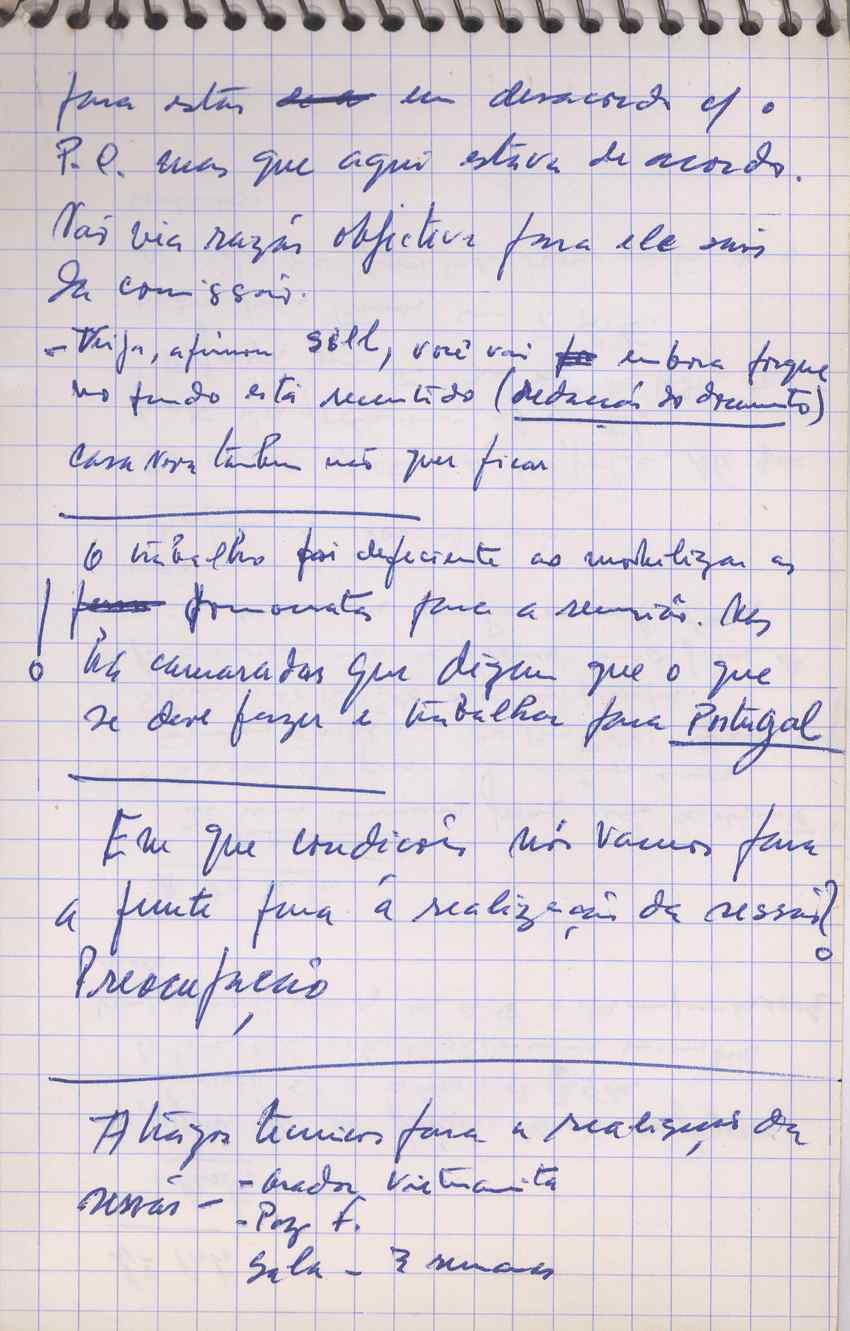 para estar em desacordo c/ o
P.C. mas que aqui estava de acordo.
Não via razão objectiva para ele sair
da comissão.
- Veiga, afirmou Sill, você vai embora porque
no fundo está ressentido (redacção do documento)
Casa Nova também não quer ficar
O trabalho foi deficiente ao mobilizar as
para a reunião. Mas
há camaradas que dizem que o que
se deve fazer é trabalhar para Portugal
Em que condições nós vamos para
a frente para a realização da sessão?
Preocupação
Atrazos técnicos para a realização da
sessão - - orador vietnamita
- F.
Sala - 3 semanas